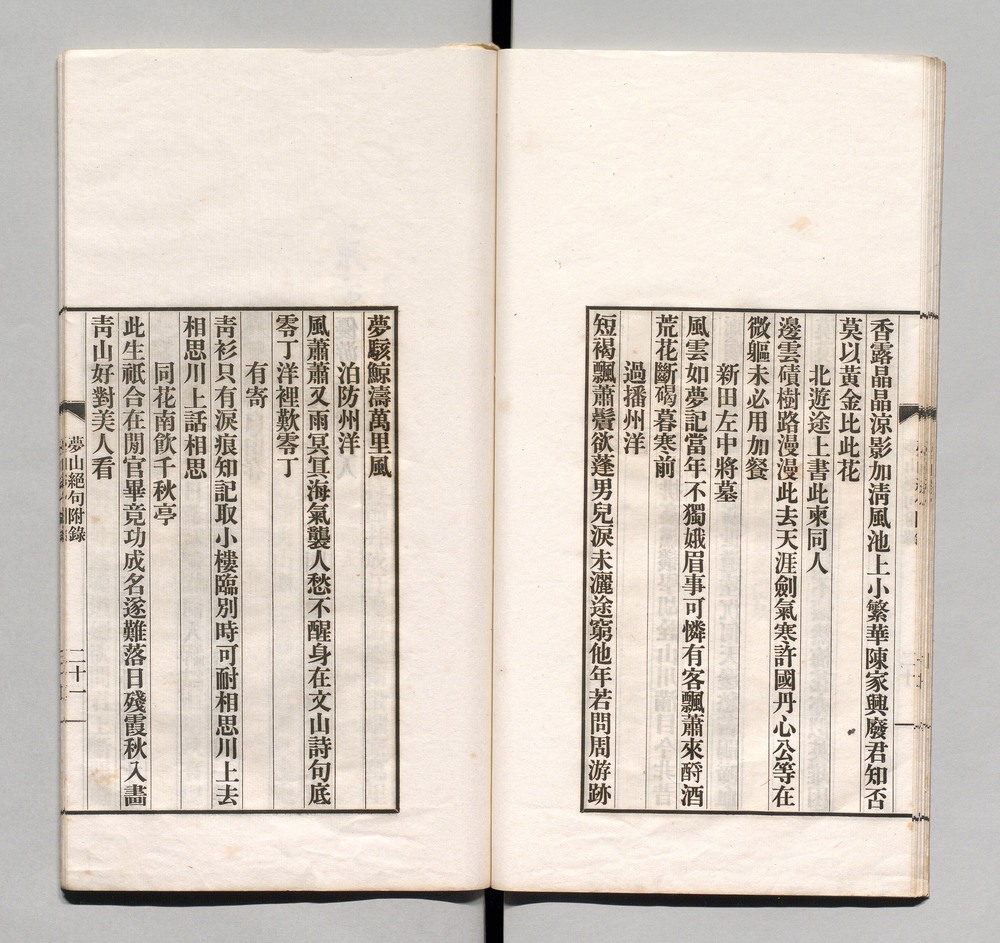 香露晶晶涼影加淸風池上小繁華陳家興廢君知否
莫以黃金比此花
北遊途上書此柬同人
邊雲磧樹路漫漫此去天涯劍氣寒許國丹心公等在
微軀未必用加餐
新田左中將墓
風雲如夢記當年不獨娥眉事可憐有客飄蕭來酹酒
荒花斷碣暮寒前
過播州洋
短褐飄蕭鬢欲蓬男兒淚未灑途窮他年若問周游跡
夢駭鯨濤萬里風
泊防州洋
風蕭蕭又雨冥冥海氣襲人愁不醒身在文山詩句底
零丁洋裡歎零丁
有寄
靑衫只有淚痕知記取小樓臨別時可耐相思川上去
相思川上話相思
同花南飮千秋亭
此生祇合在閒官畢竟功成名遂難落日殘霞秋入畵
靑山好對美人看
夢山絕句附錄
二十一